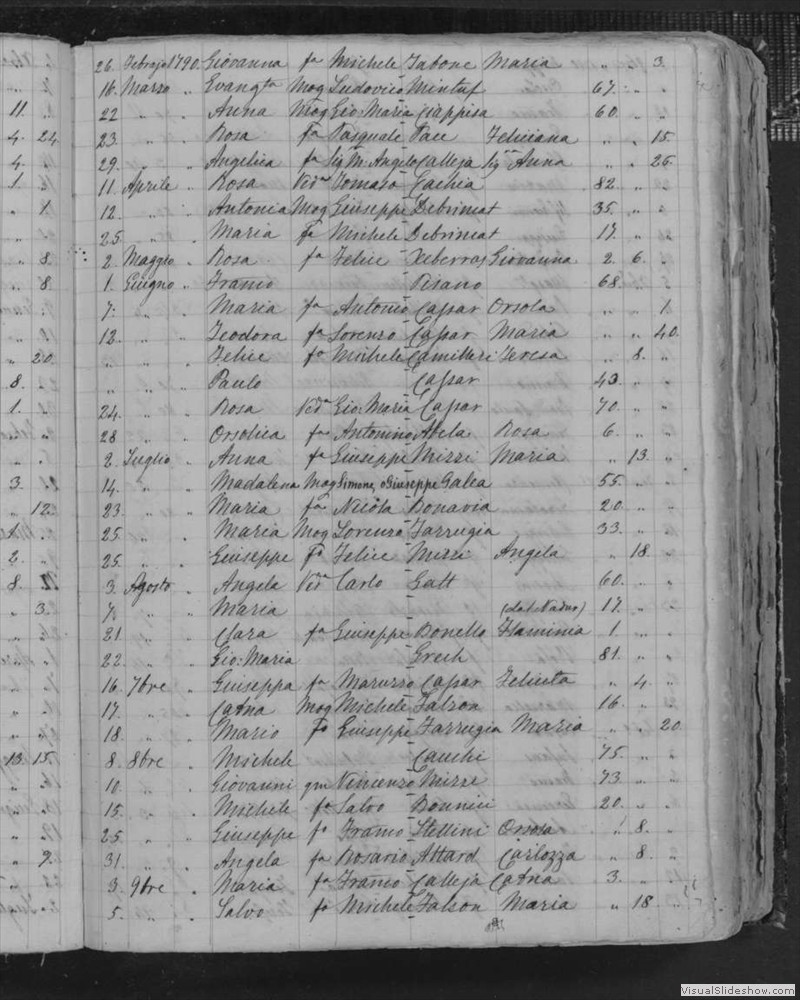 26. Febrajo 1790. Giovanna fa Michele Tabone Maria " " 3.
16. Marzo " Evangta Mog Ludovico Mintuf 67. " "
11. 22 " " Anna Mog Gio: Maria Ciappisa 60. " "
4. 24 23. " " Rosa fa Pasquale Pace Feliciana " " 15.
4. " 29. " " Angelica fa Sig M: Angelo Calleja Sig Anna " " 26.
1. " 11. Aprile " Rosa Veda Tomaso Cachia 82. " "
" 1. 12. " " Antonia Mog Giuseppe Debrincat 35. " "
" " 25. " " Maria fa Michele Debrincat 17. " "
" 8. 2. Maggio " Rosa fa Felice Xeberras Giovanna 2. 6. "
" 8. 1. Giugno " Franco Pisano 68. " "
7. " " Maria fa Antonio Caspar Orsola " " 1.
12. " " Teodora fa Lorenzo Caspar Maria " " 40.
" 20. " " " Felice fo Michele Camilleri Teresa " 8. "
8. " " " " Paulo Caspar 43. " "
1. " 24. " " Rosa Veda Gio: Maria Caspar 70. " "
28 " " Orsolica fa Antonino Abela Rosa 6. " "
2. Luglio " Anna fa Giuseppe Mizzi Maria " 13. "
3. " 14. " " Madalena Mog Simone, o Giuseppe Galea 55. " "
" 12. 23. " " Maria fa Nicola Bonavia 20. " "
25. " " Maria Mog Lorenzo Farrugia 33. " "
2. " 25. " " Giuseppe fo Felice Mizzi Angela " 18. "
8. 3. Agosto " Angela Veda Carlo Gatt 60. " "
" 3. 7. " " Maria 17. " "
21. " " Clara fa Giuseppe Bonello Flaminia 1. " "
22. " " Gio: Maria Grech 81. " "
16. 7bre " Giuseppa fa Maruzzo Caspar Felicita " 4. "
17. " " Catna Mog Michele Falzon 16. " "
18. " " Mario fo Giuseppe Farrugia Maria " " 20.
13. 15. 8. 8bre " Michele Cauchi 75. " "
10. " " Giovanni qm Vincenzo Mizzi 73 " "
15. " " Michele fo Salvo Bonnici 20. " "
25 " " Giuseppe fo Franco Stellini Orsola " 8. "
" 9. 31. " " Angela fa Rosario Attard Carlozza " 8. "
3. 9bre " Maria fa Franco Calleja Catna 3. " "
5. " " Salvo fo Michele Falson Maria " 18. "
VisualSlideshow.com